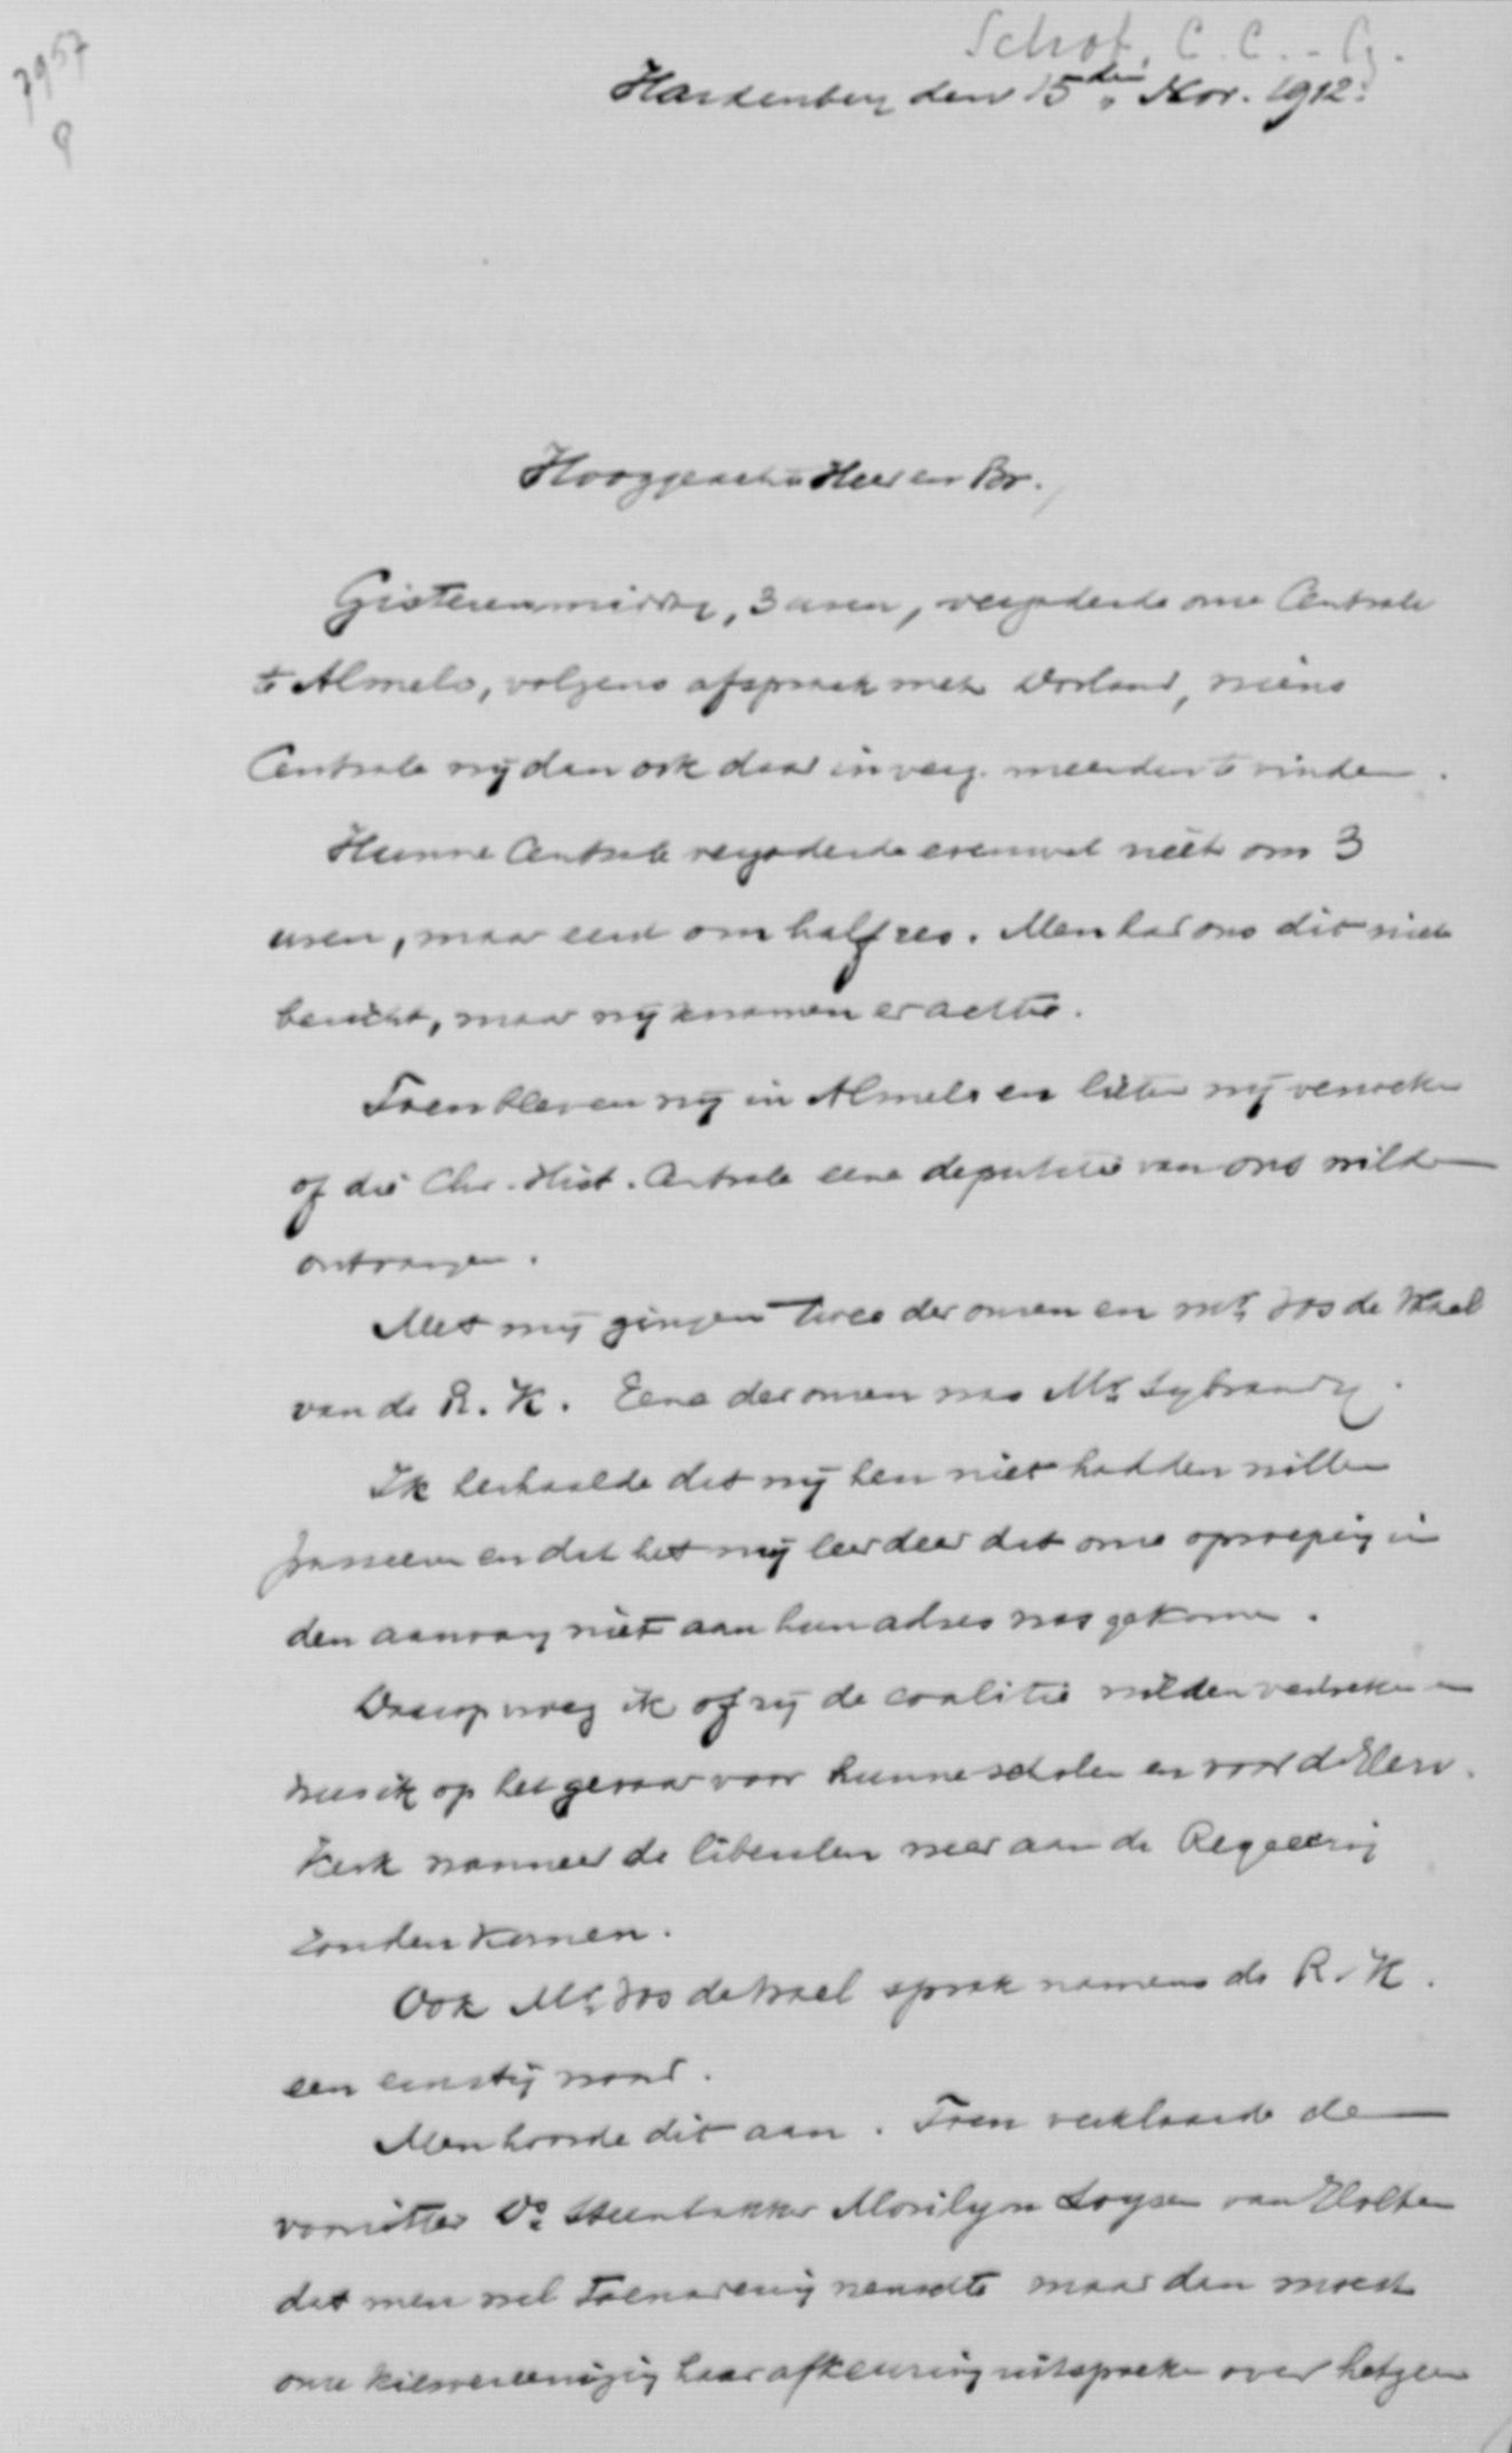 7957
Schot, C. C. - Cz.
Hardenberg den 15den Nov. 1912.
Hooggeachte Heer en Br.,
Gisterenmiddag, 3 uren, vergaderde onze Centrale
te Almelo, volgens afspraak met wiens
Centrale wij dan ook daar in verg. meenden te vinden.
Hunne Centrale vergaderde evenwel niet om 3
uren, maar eerst om half zes. Men had ons dit niet
bericht, maar wij kwamen er achter.
Toen bleven wij in Almelo en lieten wij verzoeken
of die Chr. Hist. Centrale eene deputatie van ons wilde
ontvangen.
Met mij gingen twee der onzen en Mr. Vos de Wael
van de R. K. Eene der onzen was Mr. Sybrandy.
Ik herhaalde dat wij hen niet hadden willen
passeren en dat het mij leed deed dat onze oproeping in
den aanvang niet aan hun adres was gekomen.
Daarop vroeg ik of zij de coalitie wilden verbreken en
wees ik op het gevaar voor hunne scholen en voor de Herv.
Kerk wanneer de liberalen weer aan de Regeering
zouden komen.
Ook Mr. Vos de Wael sprak namens de R. K.
een ernstig woord.
Men hoorde dit aan. Toen verklaarde de
voorzitter Ds. Steenbakker Morilyon Loysen van Holten
dat men wel toenadering wenschte maar dan moest
onze kiesvereeniging haar afkeuring uitspreken over hetgeen